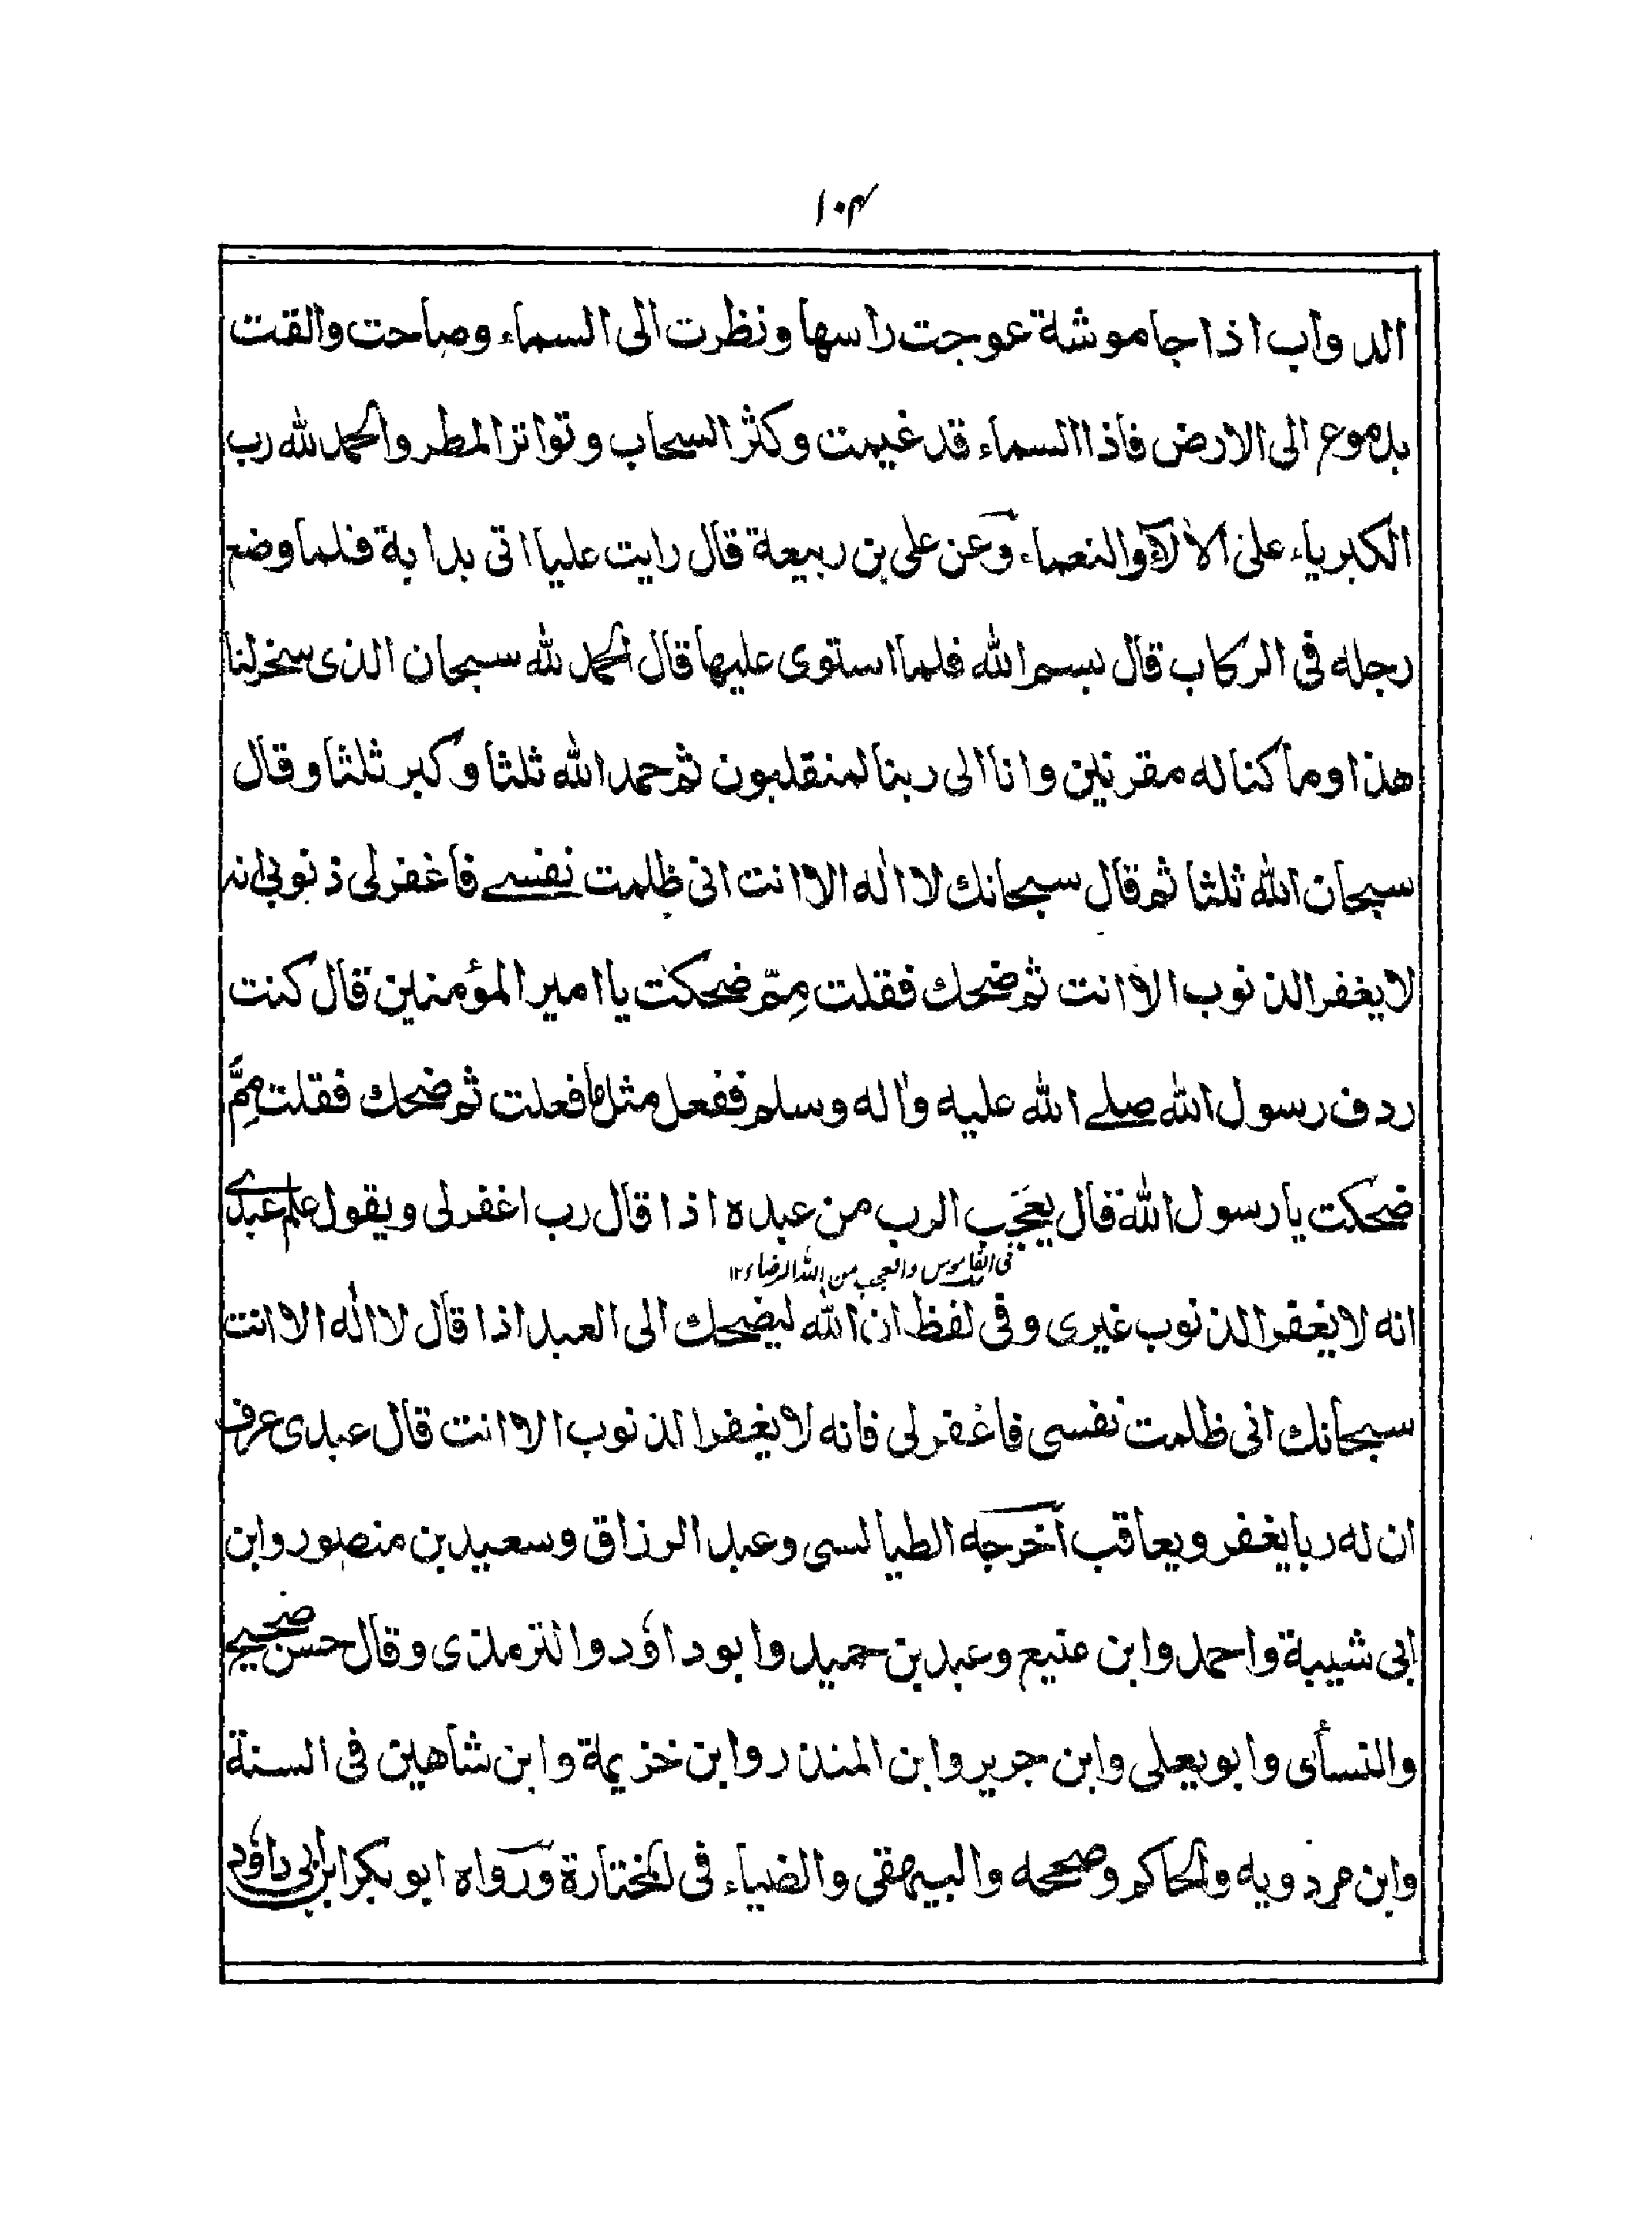 ۱۰۴
الدواب اذا جاموشة عوجت راسها ونظرت الى السماء وصاحت والقت
بدموع الى الارض فاذا السماء قد غيمت وكثر السحاب وتواتر المطر والحمد لله رب
الكبرياء على الالآء والنعماء وعن على بن ربيعة قال رايت عليا اتى بدابة فلما وضع
رجله فى الركاب قال بسم الله فلما استوى عليها قال الحمد لله سبحان الذى سخر لنا
هذا وما كنا له مقرنين وانا الى ربنا لمنقلبون ثم حمد الله ثلثا وكبر ثلثا وقال
سبحان الله ثلثا ثم قال سبحانك لا اله الا انت انى ظلمت نفسے فاغفر لى ذنوبى انه
لا يغفر الذنوب الا انت ثم ضحك فقلت مِمّ ضحكت يا امير المؤمنين قال كنت
ردف رسول الله صلے الله عليه واٰله وسلم ففعل مثل ما فعلت ثم ضحك فقلت مِمَّ
ضحكت يا رسول الله قال يعجَب الرب من عبده اذا قال رب اغفر لى ويقول علم عبدے
فى القاموس والعجب من الله الرضاء ۱۲
انه لا يغفر الذنوب غيرى وفى لفظ ان الله ليضحك الى العبد اذا قال لا اله الا انت
سبحانك انى ظلمت نفسى فاغفر لى فانه لا يغفر الذنوب الا انت قال عبدى عرف
ان له ربا يغفر ويعاقب اخرجه الطيالسى وعبد الرزاق وسعيد بن منصور وابن
ابى شيبة واحمد وابن منيع وعبد بن حميد وابو داؤد والترمذى وقال حسن صحيح
والنسأى وابو يعلى وابن جرير وابن المنذر وابن خزيمة وابن شاهين فى السنة
وابن مردويه والحاكم وصححه والبيهقى والضياء فى المختارة ورواه ابو بكر ابن ابى داؤد